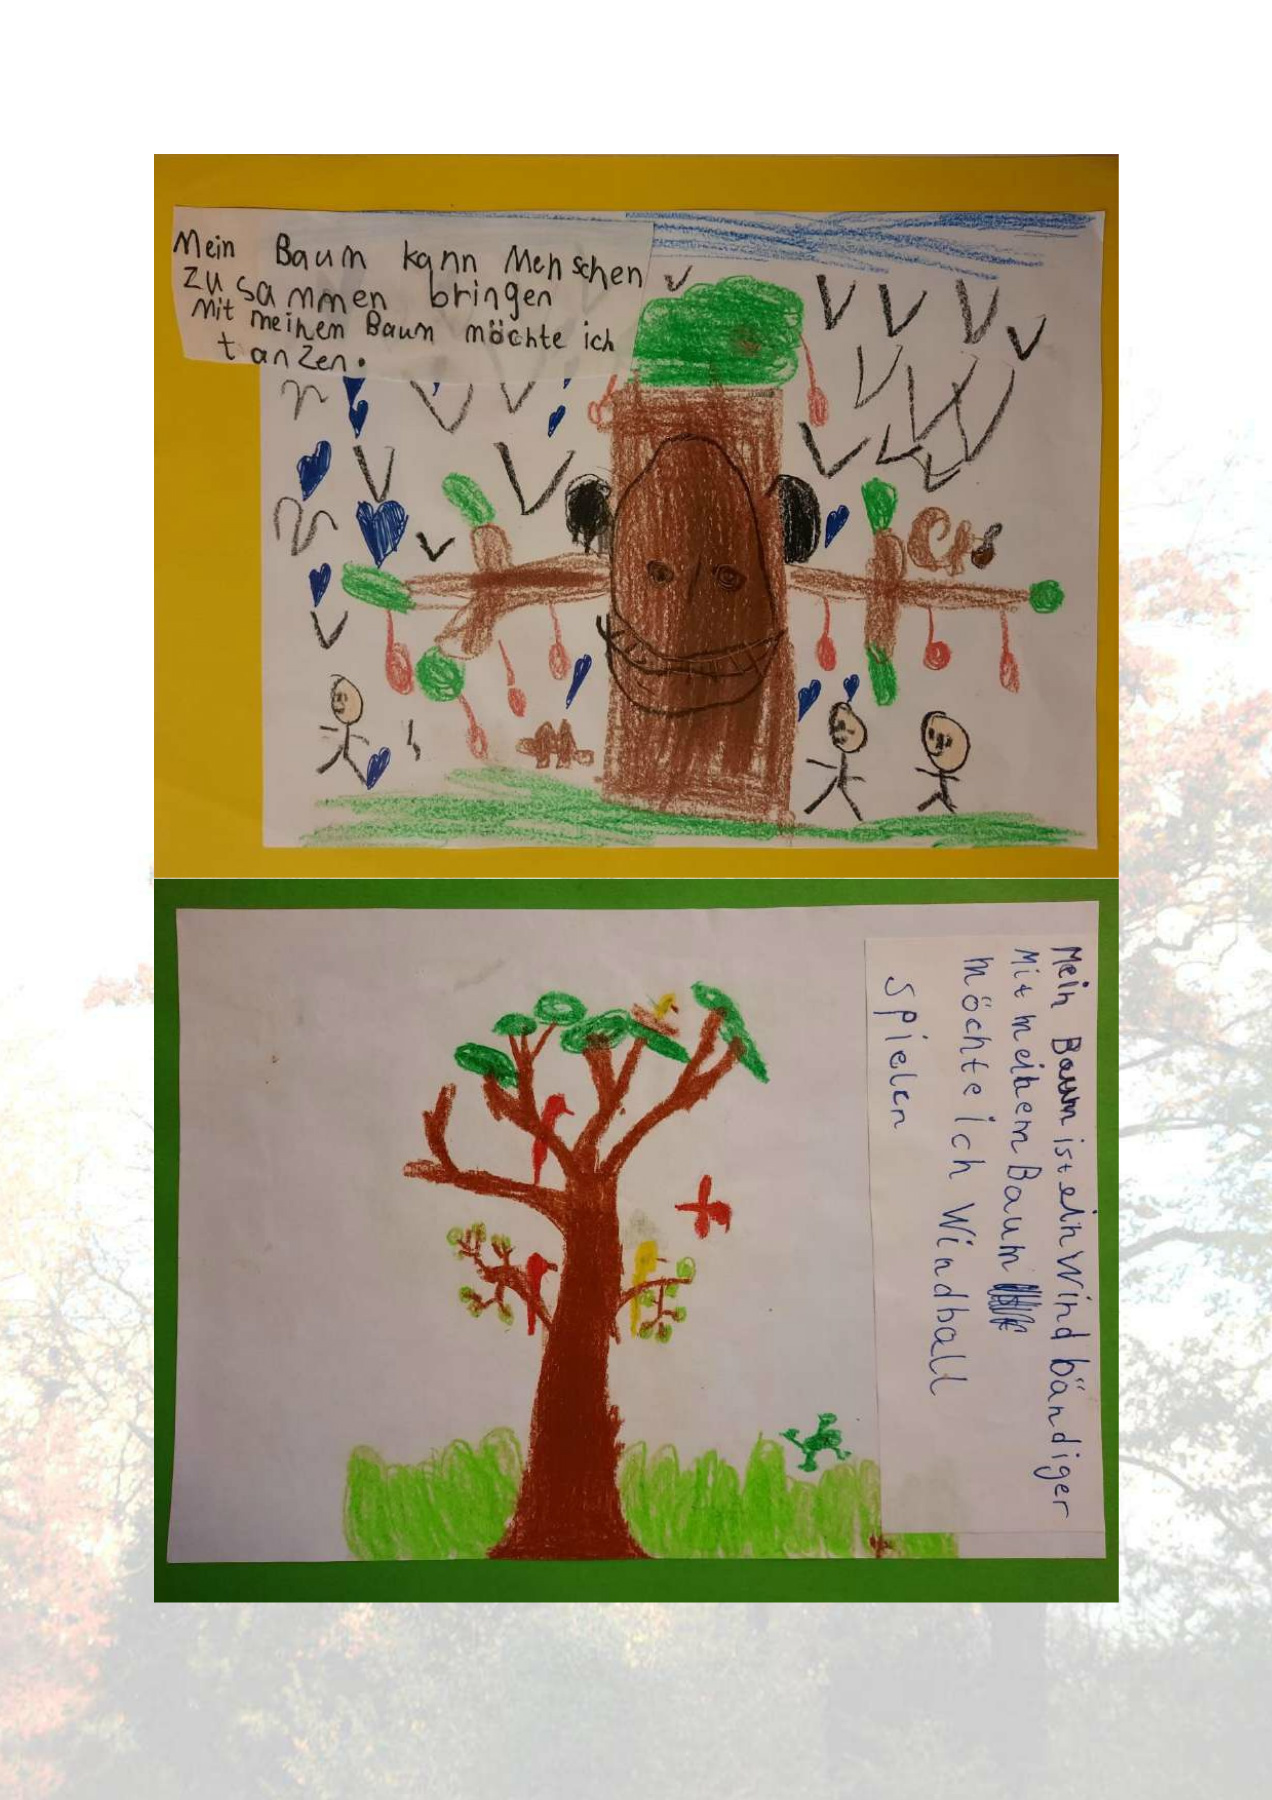 Mein Baum kann Menschen
zusammen bringen
Mit meinem Baum möchte ich
tanzen.
Mein Baum ist ein Windbändiger
Mit meinem Baum
möchte ich Windball
spielen